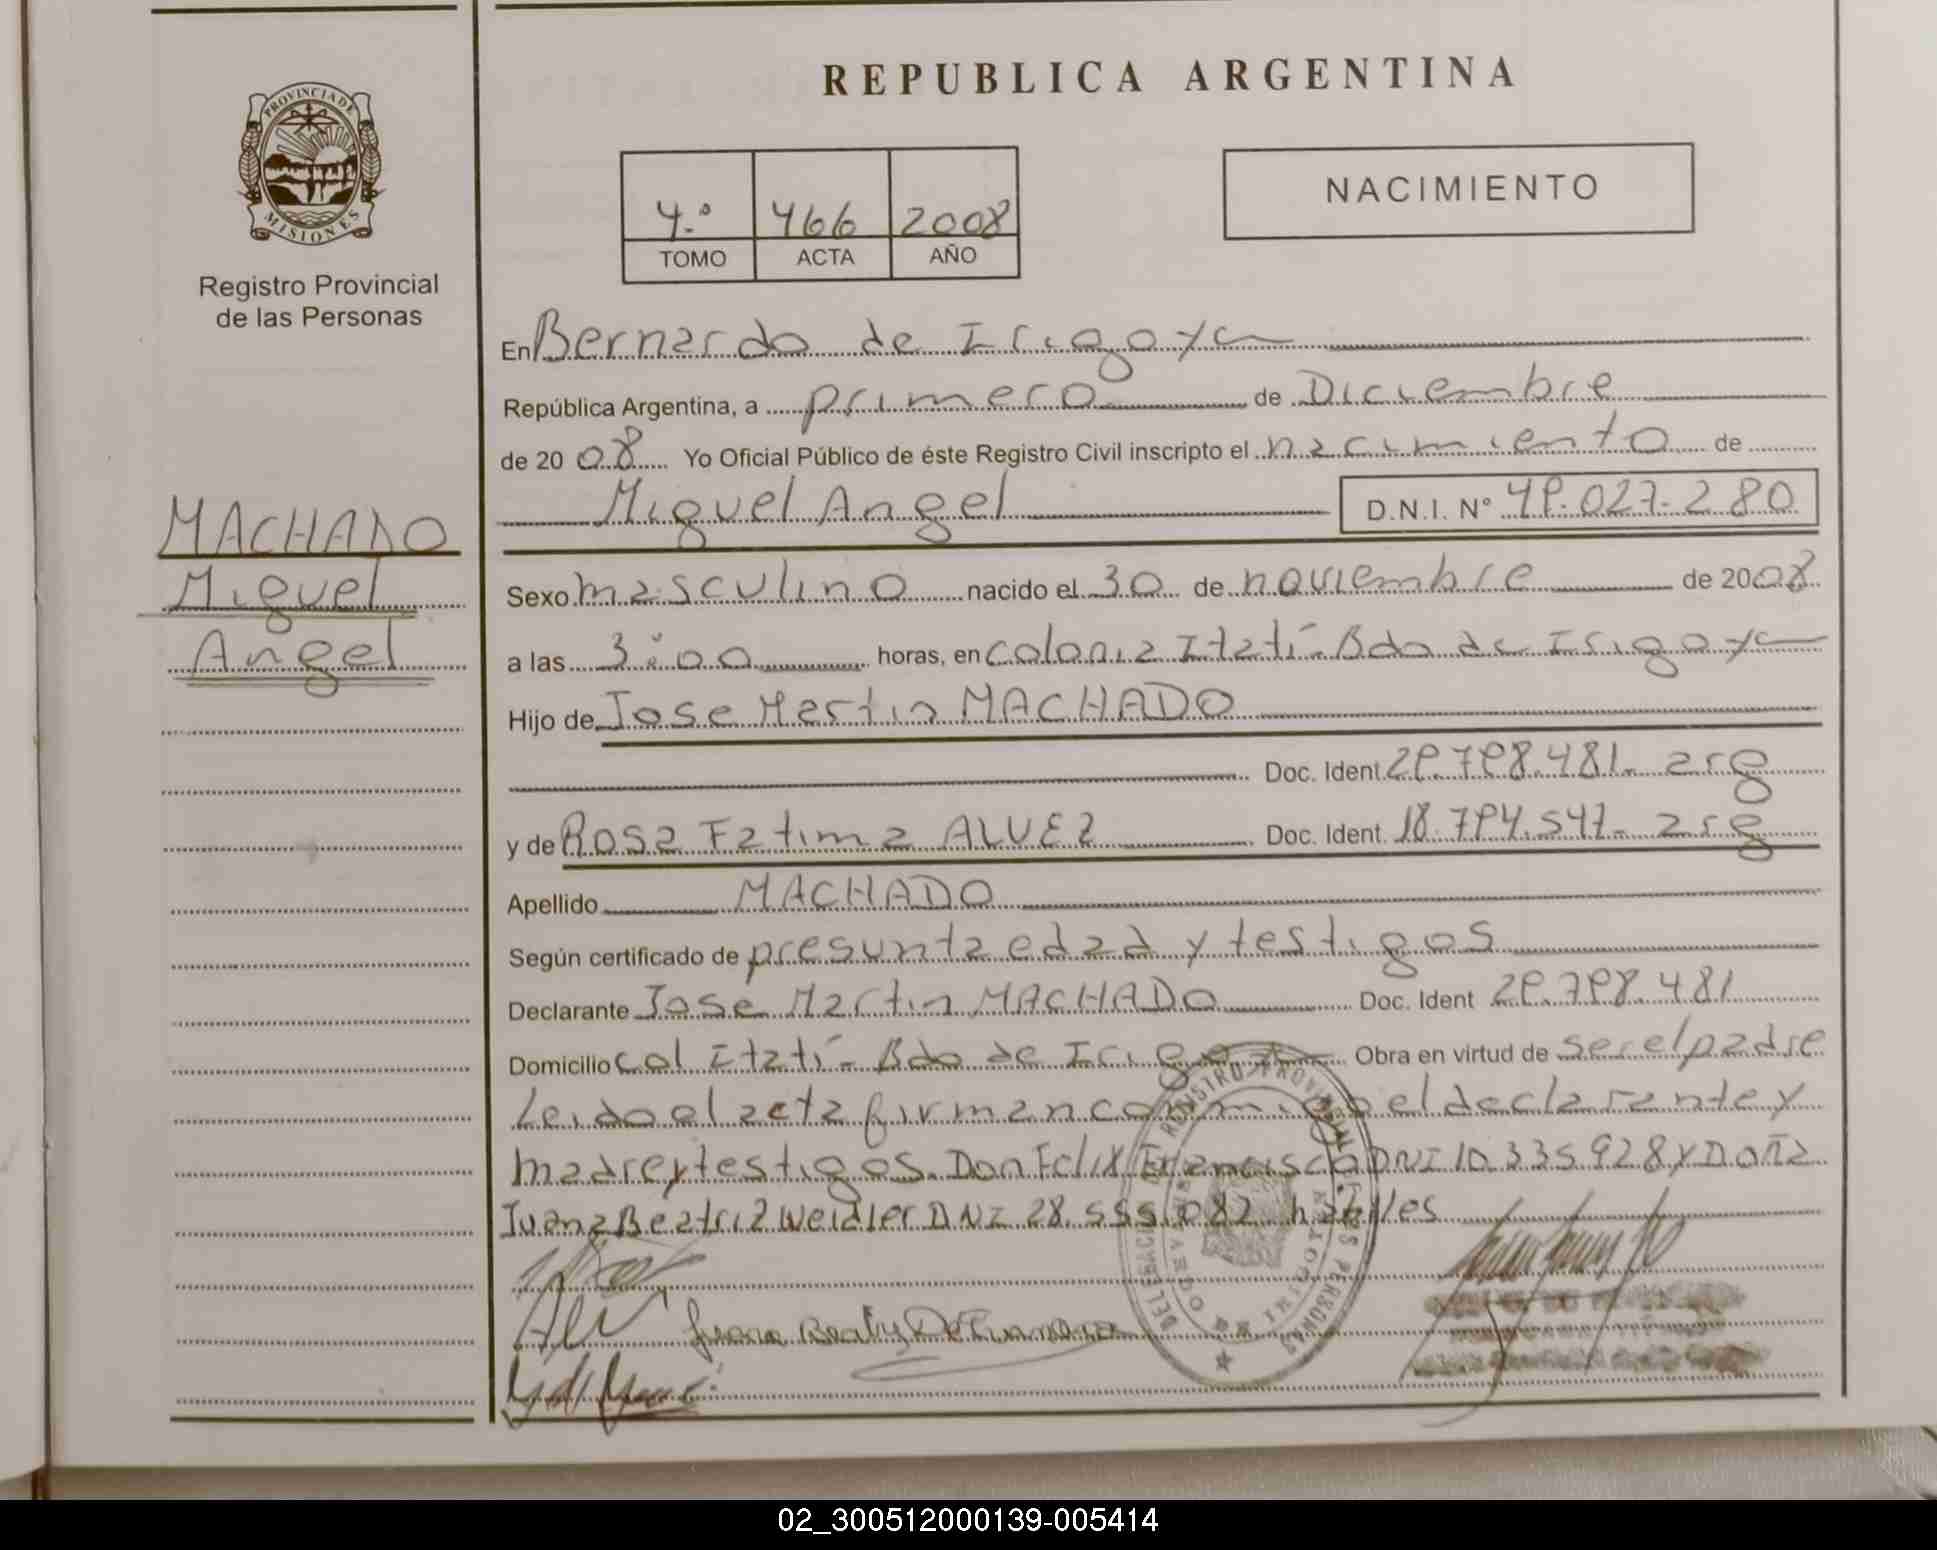 PROVINCIA DE
MISIONES
Registro Provincial
de las Personas
MACHADO
Miguel
Angel
REPUBLICA ARGENTINA
4.º 466 2008
TOMO ACTA AÑO
NACIMIENTO
En Bernardo de Irigoyen
República Argentina, a primero de Diciembre
de 2008 Yo Oficial Público de éste Registro Civil inscripto el nacimiento de
Miguel Angel D.N.I. Nº 49.027.280
Sexo masculino nacido el 30 de noviembre de 2008
a las 3:00 horas, en colonia Itatí-Bdo de Irigoyen
Hijo de Jose Martin MACHADO
Doc. Ident. 29.798.481- arg
y de Rosa Fatima ALVEZ Doc. Ident. 18.794.547- arg
Apellido MACHADO
Según certificado de presunta edad y testigos
Declarante José Martin MACHADO Doc. Ident 29.798.481
Domicilio Col Itatí- Bdo de Irigoyen Obra en virtud de ser el padre
Leido el acta firman conmigo el declarante y
madre y testigos. Don Felix Francisco DNI 10.335.928 y Doña
Juana Beatriz Weidler DNI 28.555.082 habiles
DELEGACIA DEL REGISTRO PROVINCIAL DE LAS PERSONAS